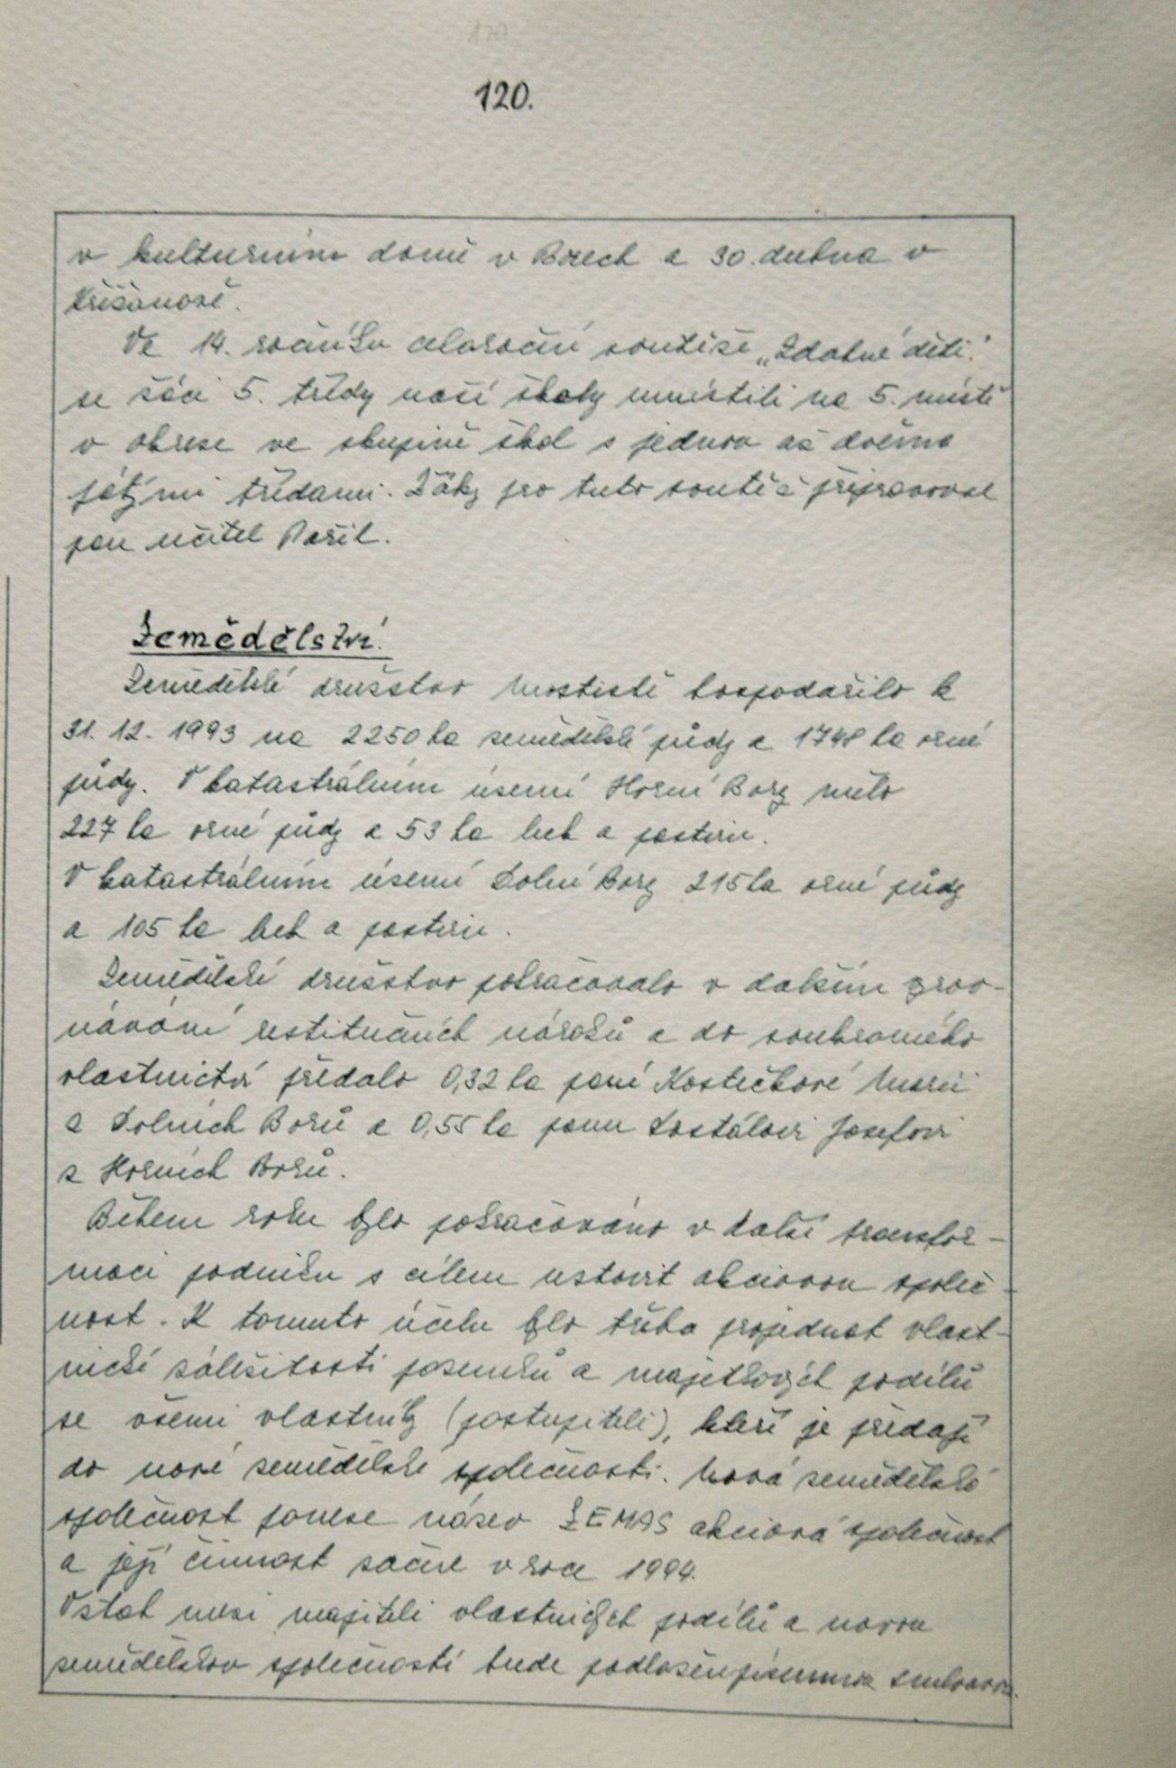 120.
v kulturním domě v Borech a 30. dubna v
Křižanově.
Ve 14. ročníku celoroční soutěže „Zdatné děti“
se žáci 5. třídy naší školy umístili na 5. místě
v okrese ve skupině škol s jednou až dvěma
pátými třídami. Žáky pro tuto soutěž připravoval
pan učitel Pařil.
Zemědělství.
Zemědělské družstvo Mostiště hospodařilo k
31. 12. 1993 na 2250 ha zemědělské půdy a 1748 ha orné
půdy. V katastrálním území Horní Bory mělo
227 ha orné půdy a 53 ha luk a pastvin.
V katastrálním území Dolní Bory 215 ha orné půdy
a 105 ha luk a pastvin.
Zemědělské družstvo pokračovalo v dalším srov-
návání restitučních nároků a do soukromého
vlastnictví předalo 0,32 ha paní Kostečkové Marii
z Dolních Borů a 0,55 ha panu Dostálovi Josefovi
z Horních Borů.
Během roku bylo pokračováno v další transfor-
maci podniku s cílem ustavit akciovou společ-
nost. K tomuto účelu bylo třeba projednat vlast-
nické záležitosti pozemků a majetkových podílů
se všemi vlastníky (postupiteli), kteří je předají
do nové zemědělské společnosti. Nová zemědělská
společnost ponese název ZEMAS akciová společnost
a její činnost začne v roce 1994.
Vztah mezi majiteli vlastnických podílů a novou
zemědělskou společností bude podložen písemnou smlouvou.